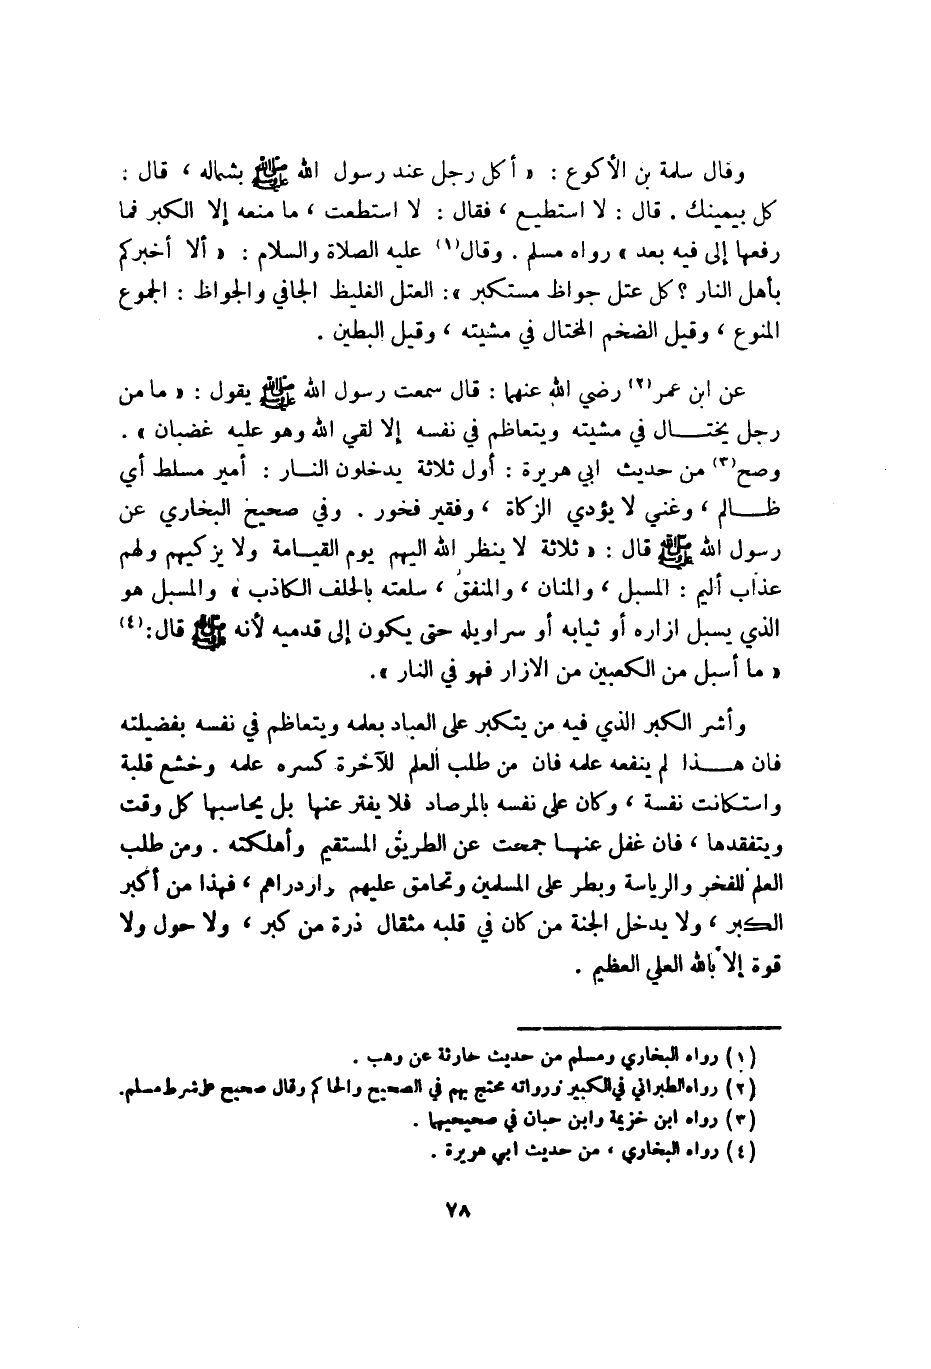 وقال سلمة بن الأكوع : « أكل رجل عند رسول الله ﷺ بشماله ، قال :
كل بيمينك . قال : لا استطيع ، فقال : لا استطعت ، ما منعه إلا الكبر فما
رفعها إلى فيه بعد » رواه مسلم . وقال(١) عليه الصلاة والسلام : « ألا أخبركم
بأهل النار ؟ كل عتل جواظ مستكبر »: العتل الغليظ الجافي والجواظ : الجموع
المنوع ، وقيل الضخم المختال في مشيته ، وقيل البطين .
عن ابن عمر(٢) رضي الله عنهما : قال سمعت رسول الله ﷺ يقول : « ما من
رجل يختـــال في مشيته ويتعاظم في نفسه إلا لقي الله وهو عليه غضبان » .
وصح(٣) من حديث ابي هريرة : أول ثلاثة يدخلون النـــار : أمير مسلط أي
ظـــالم ، وغني لا يؤدي الزكاة ، وفقير فخور . وفي صحيح البخاري عن
رسول الله ﷺ قال : « ثلاثة لا ينظر الله اليهم يوم القيـامة ولا يزكيهم ولهم
عذاب أليم : المسبل ، والمنان ، والمنفق ، سلعته بالحلف الكاذب » والمسبل هو
الذي يسبل ازاره أو ثيابه أو سراويله حتى يكون إلى قدميه لأنه ﷺ قال:(٤)
« ما أسبل من الكعبين من الازار فهو في النار ».
وأشر الكبر الذي فيه من يتكبر على العباد بعلمه ويتعاظم في نفسه بفضيلته
فان هـــذا لم ينفعه علمه فان من طلب العلم للآخرة كسره علمه وخشع قلبة
واستكانت نفسة ، وكان على نفسه بالمرصاد فلا يفتر عنها بل يحاسبها كل وقت
ويتفقدها ، فان غفل عنهـا جمحت عن الطريق المستقيم وأهلكته . ومن طلب
العلم للفخر والرياسة وبطر على المسلمين وتحامق عليهم وازدراهم ، فهذا من أكبر
الكبر ، ولا يدخل الجنة من كان في قلبه مثقال ذرة من كبر ، ولا حول ولا
قوة إلا بالله العلي العظيم .
(١) رواه البخاري ومسلم من حديث حارثة عن وهب .
(٢) رواه الطبراني في الكبير ورواته محتج بهم في الصحيح والحاكم وقال صحيح على شرط مسلم.
(٣) رواه ابن خزيمة وابن حبان في صحيحيهما .
(٤) رواه البخاري ، من حديث ابي هريرة .
٧٨